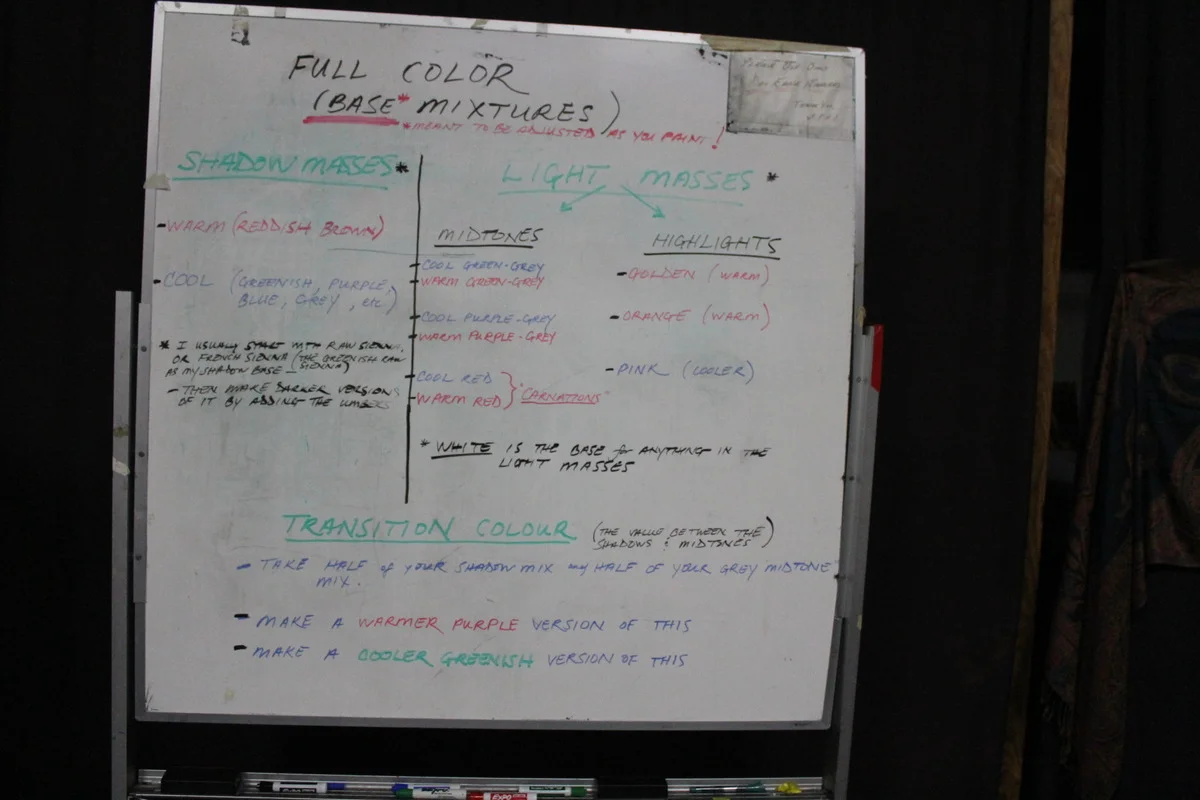 FULL COLOR
(BASE* MIXTURES)
*MEANT TO BE ADJUSTED AS YOU PAINT!
SHADOW MASSES*
- WARM (REDDISH BROWN)
- COOL (GREENISH, PURPLE,
BLUE, GREY, etc)
* I USUALLY START WITH RAW SIENNA,
OR FRENCH SIENNA (THE GREENISH RAW
AS MY SHADOW BASE - SIENNA)
- THEN MAKE DARKER VERSIONS
OF IT BY ADDING THE UMBERS
LIGHT MASSES *
MIDTONES
- COOL GREEN-GREY
- WARM GREEN-GREY
- COOL PURPLE-GREY
- WARM PURPLE-GREY
- COOL RED
- WARM RED } "CARNATIONS"
HIGHLIGHTS
- GOLDEN (WARM)
- ORANGE (WARM)
- PINK (COOLER)
* WHITE IS THE BASE for ANYTHING IN THE
LIGHT MASSES
TRANSITION COLOUR (THE VALUE BETWEEN THE
SHADOWS & MIDTONES)
- TAKE HALF of YOUR SHADOW MIX any HALF OF YOUR GREY MIDTONE
MIX.
- MAKE A WARMER PURPLE VERSION OF THIS
- MAKE A COOLER GREENISH VERSION OF THIS
EXPO